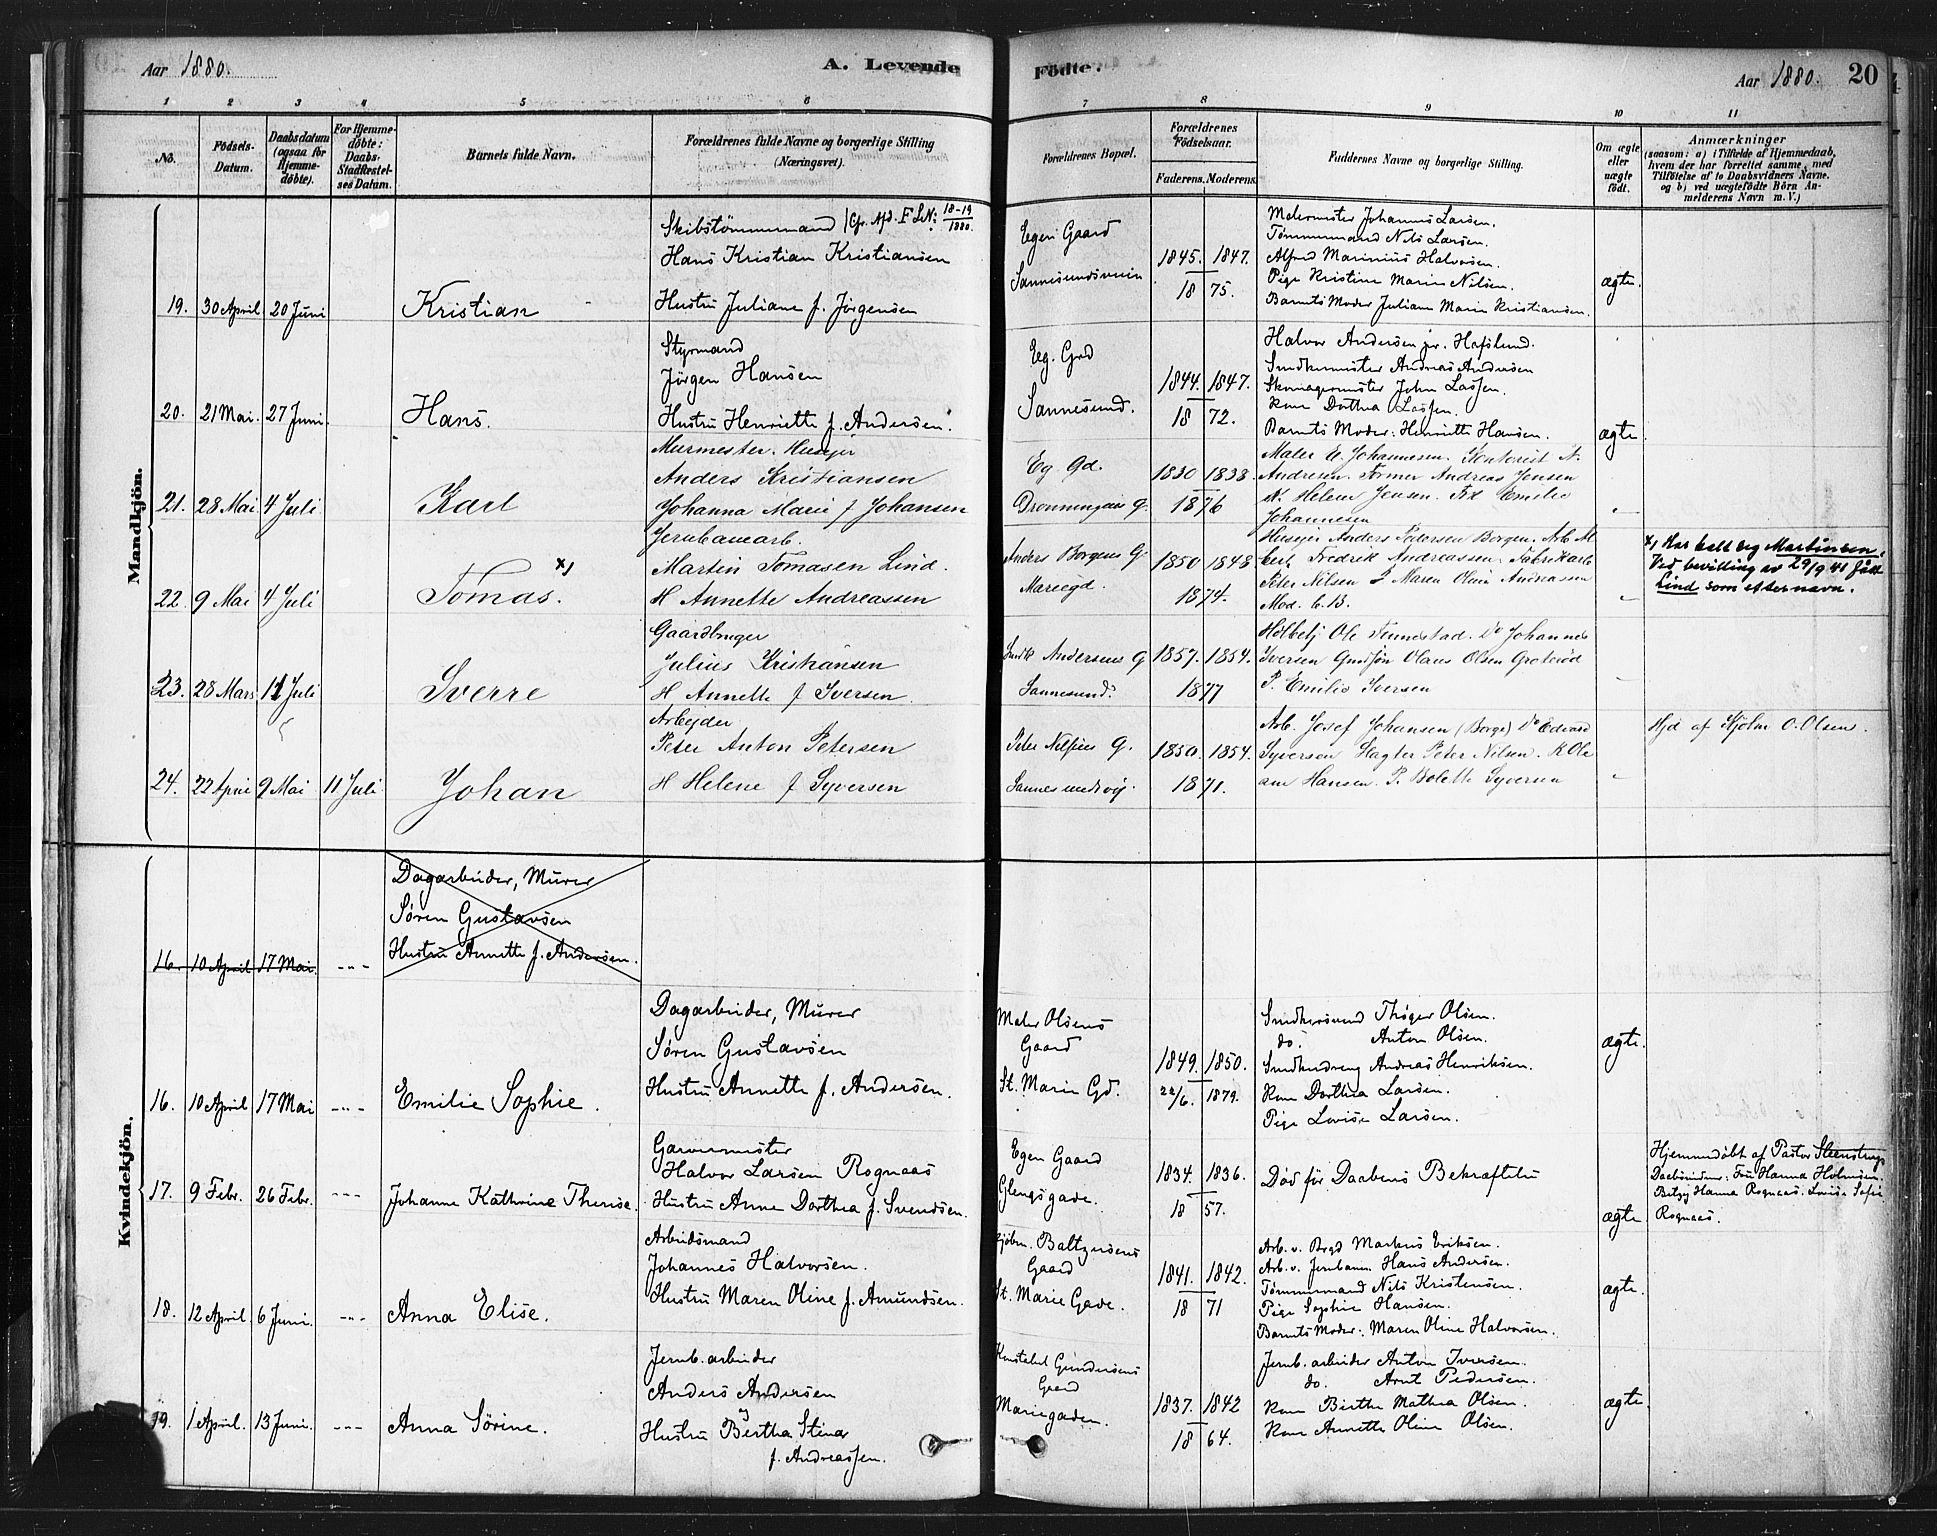 Aar 1880.
A. Levende Födte.
Aar 1880. 20
1 2 3 4 5 6 7 8 9 10 11
No.
Födsels-Datum.
Daabsdatum (ogsaa for Hjemme-döbte).
For Hjemme-döbte: Daabs-Stadfæstel-ses Datum.
Barnets fulde Navn.
Forældrenes fulde Navne og borgerlige Stilling (Næringsvei).
Forældrenes Bopæl.
Forældrenes Födselsaar.
Faderens. Moderens.
Faddernes Navne og borgerlige Stilling.
Om ægte eller uægte födt.
Anmærkninger
(saasom: a) i Tilfælde af Hjemmedaab, hvem der har forrettet samme, med Tilföielse af to Daabsvidners Navne. og b) ved uægtefödte Börn An-melderens Navn m. V.)
Mandkjön.
19. 30 April 20 Juni
Kristian
Skibstömmermand
18-19
1880.
Hans Kristian Kristiansen
Hustru Juliane f. Jörgensen
Egen Gaard
Sannesundsveien
1845. 1847.
18 75.
Malermester Johannes Larsen.
Tömmermand Nils Larsen.
Alfred Marinius Halvorsen.
Pige Kristine Marie Nilsen.
Barnets Moder Juliane Marie Kristiansen.
ægte.
20. 21 Mai. 27 Juni.
Hans.
Styrmand
Jörgen Hansen
Hustru Henriette f. Andersen.
Eg. Grd
Sannesund.
1844. 1847.
18 72.
Halvor Andersen jr. Hafslund.
Smedkemester Andreas Andersen
Skomagermester John Lassen.
Kone Dorthea Lassen.
Barnets Moder: Henriette Hansen.
ægte
21. 28 Mai 4 Juli
Karl
Murmester. Huseier
Anders Kristiansen
Johanna Marie f Johansen
Eg Gd.
Dronningens G.
1830 1838
1876
Maler A. Johannesen. Kontorist A.
Andresen. Former Andreas Jensen
K. Helene Jensen. Frk Emilie
Johannesen
22. 9 Mai 4 Juli
Tomas. x)
Jernbanearb.
Martin Tomasen Lind.
H Annette Andreassen
Anders Borgens G.
Mariegd.
1850 1848
1874.
Huseier Anders Petersen Borgen. Arb
Fredrik Andreassen. Fabrikarb
Peter Nilsen P Maren Oline Andreassen
Mod. C. B.
x) Har kalt seg Martinsen.
Ved bevilling av 29/9 41 fått
Lind som etternavn.
23. 28 Mars 11 Juli
Sverre
Gaardbruger
Julius Kristiansen
H Annette f Iversen.
Andersens G
Sannesund.
1857. 1854.
1877
Ole Tunnestad. Do Johannes
Iversen Olaus Olsen Grotteröd
P. Emilie Iversen
24. 22 April 9 Mai 11 Juli
Johan
Arbejder
Peter Anton Petersen
H Helene f Syversen
Peter Nilsens G.
Sannesundsvej.
1850. 1854.
1871.
Arb. Josef Johansen (Borge) Do Edvard
Syversen Slagter Peter Nilsen. K Ole
ane Hansen. P. Bolette Syversen
Hjd af Hjelm O. Olsen.
Kvindekjön.
16. 10 April 17 Mai.
Dagarbeider, Murer
Sören Gustavsen
Hustru Annette f. Andersen.
16. 10 April 17 Mai
Emilie Sophie.
Dagarbeider, Murer
Sören Gustavsen
Hustru Annette f. Andersen.
Maler Olsens
Gaard
St. Marie Gd.
1849. 1850.
22/6. 1879.
Smedkesvend Thöger Olsen.
do. Anton Olsen.
Smededreng Andreas Henriksen.
Kone Dorthea Larsen.
Pige Lovise Larsen.
ægte.
17. 9 Febr. 26 Febr.
Johanne Kathrine Therese.
Garvermester
Halvor Larsen Rognaas
Hustru Anne Dorthea f. Svendsen.
Egen Gaard
Glengsgade.
1834. 1836.
18 57.
Död för Daabens Bekræftelse
ægte
Hjemmedöbt af Pastor Steenstrup
Daabsvidner: Fru Hanna Holmsen.
Betzy Hanna Rognaas. Lovise Sofie
Rognaas.
18. 12 April 6 Juni.
Anna Elise.
Arbeidsmand
Johannes Halvorsen.
Hustru Maren Oline f. Amundsen.
Kjöbm. Baltzersens
Gaard
St. Marie Gade.
1841. 1842.
18 71
Arb. v. Bryd Markus Eriksen.
Arb. v. Jernbanen Hans Andersen.
Tömmermand Nils Kristensen.
Pige Sophie Hansen.
Barnets Moder: Maren Oline Halvorsen.
ægte.
19. 1 April. 13 Juni.
Anna Sörine.
Jernb. arbeider
Anders Andersen
Hustru Bertha Stina
f. Andreassen.
Konstabel Gundersens
Gaard
Mariegaden.
1837. 1842
18 64.
Jernb. arbeider Anton Iversen.
do. Arnt Pedersen.
Kone Birthe Mathea Olsen.
Kone Annette Oline Olsen.
ægte.